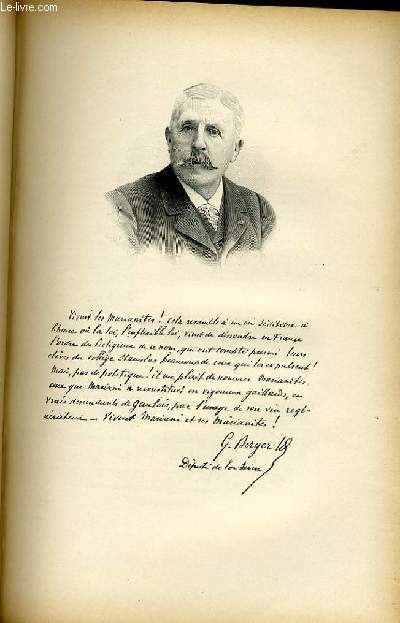 Le-livre.com
Vivent les Marianites ! cela ressemble à un cri séditieux à
l'heure où la loi, l'implacable loi, vient de dissoudre en France
l'ordre de Religieux de ce nom, qui ont compté parmi leurs
élèves du collège Stanislas beaucoup de ceux qui les expulsent !
Mais, pas de politique ! il me plaît de nommer Marianites,
ceux que Mariani a reconstitués en vigoureux gaillards, en
vrais descendants de Gaulois, par l'usage de son vin régé-
nérateur — Vivent Mariani et ses Marianites !
G. Berger
Député de